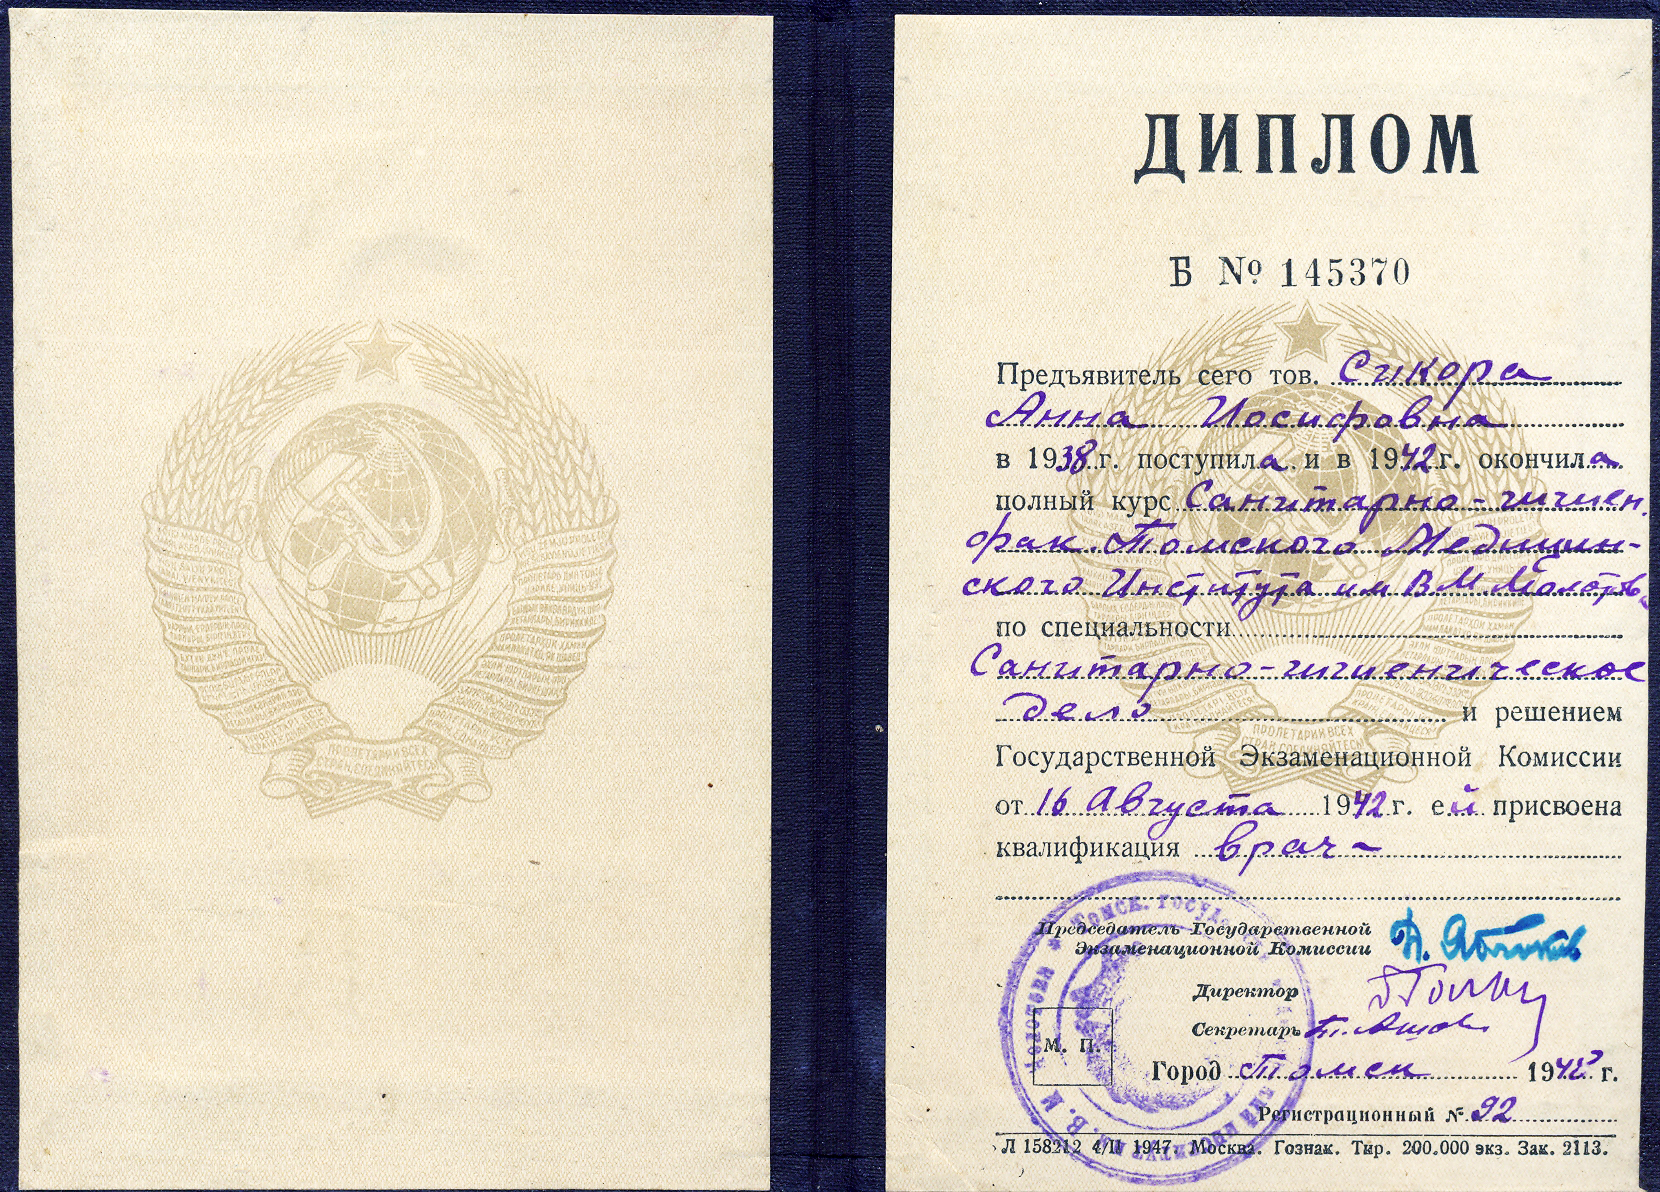 ДИПЛОМ
Б № 145370
Предъявитель сего тов. Сикора
Анна Иосифовна
в 1938 г. поступила и в 1942 г. окончила
полный курс Санитарно-гигиен.
фак. Томского Медицин-
ского Института им В М Молотова
по специальности
Санитарно-гигиеническое
дело и решением
Государственной Экзаменационной Комиссии
от 16 Августа 1942 г. ей присвоена
квалификация врач
Председатель Государственной
Экзаменационной Комиссии
Директор
Секретарь
М. П.
Город Томск 194 г.
Регистрационный № 92
Л 158212 4/II 1947. Москва. Гознак. Тир. 200.000 экз. Зак. 2113.
ПРОЛЕТАРИИ ВСЕХ
СТРАН, СОЕДИНЯЙТЕСЬ